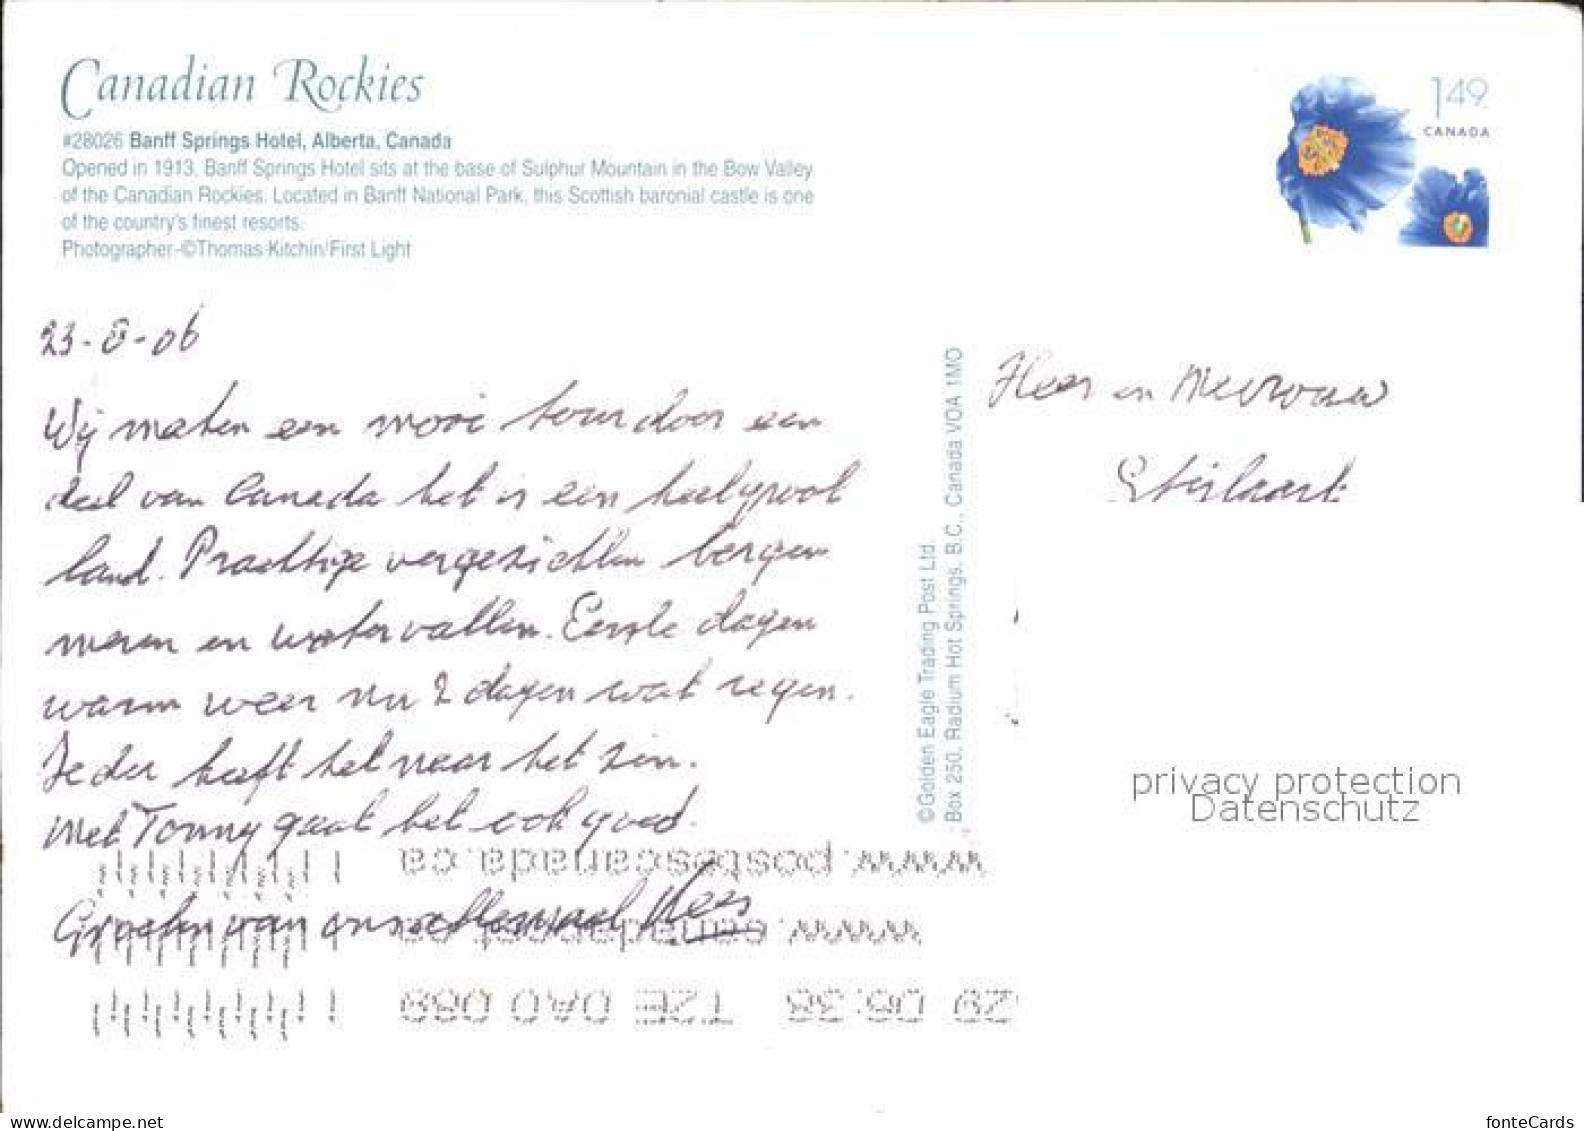 Canadian Rockies
#28026 Banff Springs Hotel, Alberta, Canada
Opened in 1913, Banff Springs Hotel sits at the base of Sulphur Mountain in the Bow Valley
of the Canadian Rockies. Located in Banff National Park, this Scottish baronial castle is one
of the country's finest resorts.
Photographer-©Thomas Kitchin/First Light
1.49
CANADA
23-8-06
Wij maken een mooie tour door een
deel van Canada het is een heel groot
land. Prachtige vergezichten bergen
meren en watervallen. Eerste dagen
warm weer nu 2 dagen wat regen.
Ieder heeft het naar het zin.
Met Tonny gaat het ook goed.
Groeten van ons allemaal Kees
Heer en Mevrouw
©Golden Eagle Trading Post Ltd.
Box 250, Radium Hot Springs, B.C., Canada V0A 1M0
privacy protection
Datenschutz
www.postescanada.ca
www.canadapost.ca
T2E 0A0 089
www.delcampe.net
fonteCards